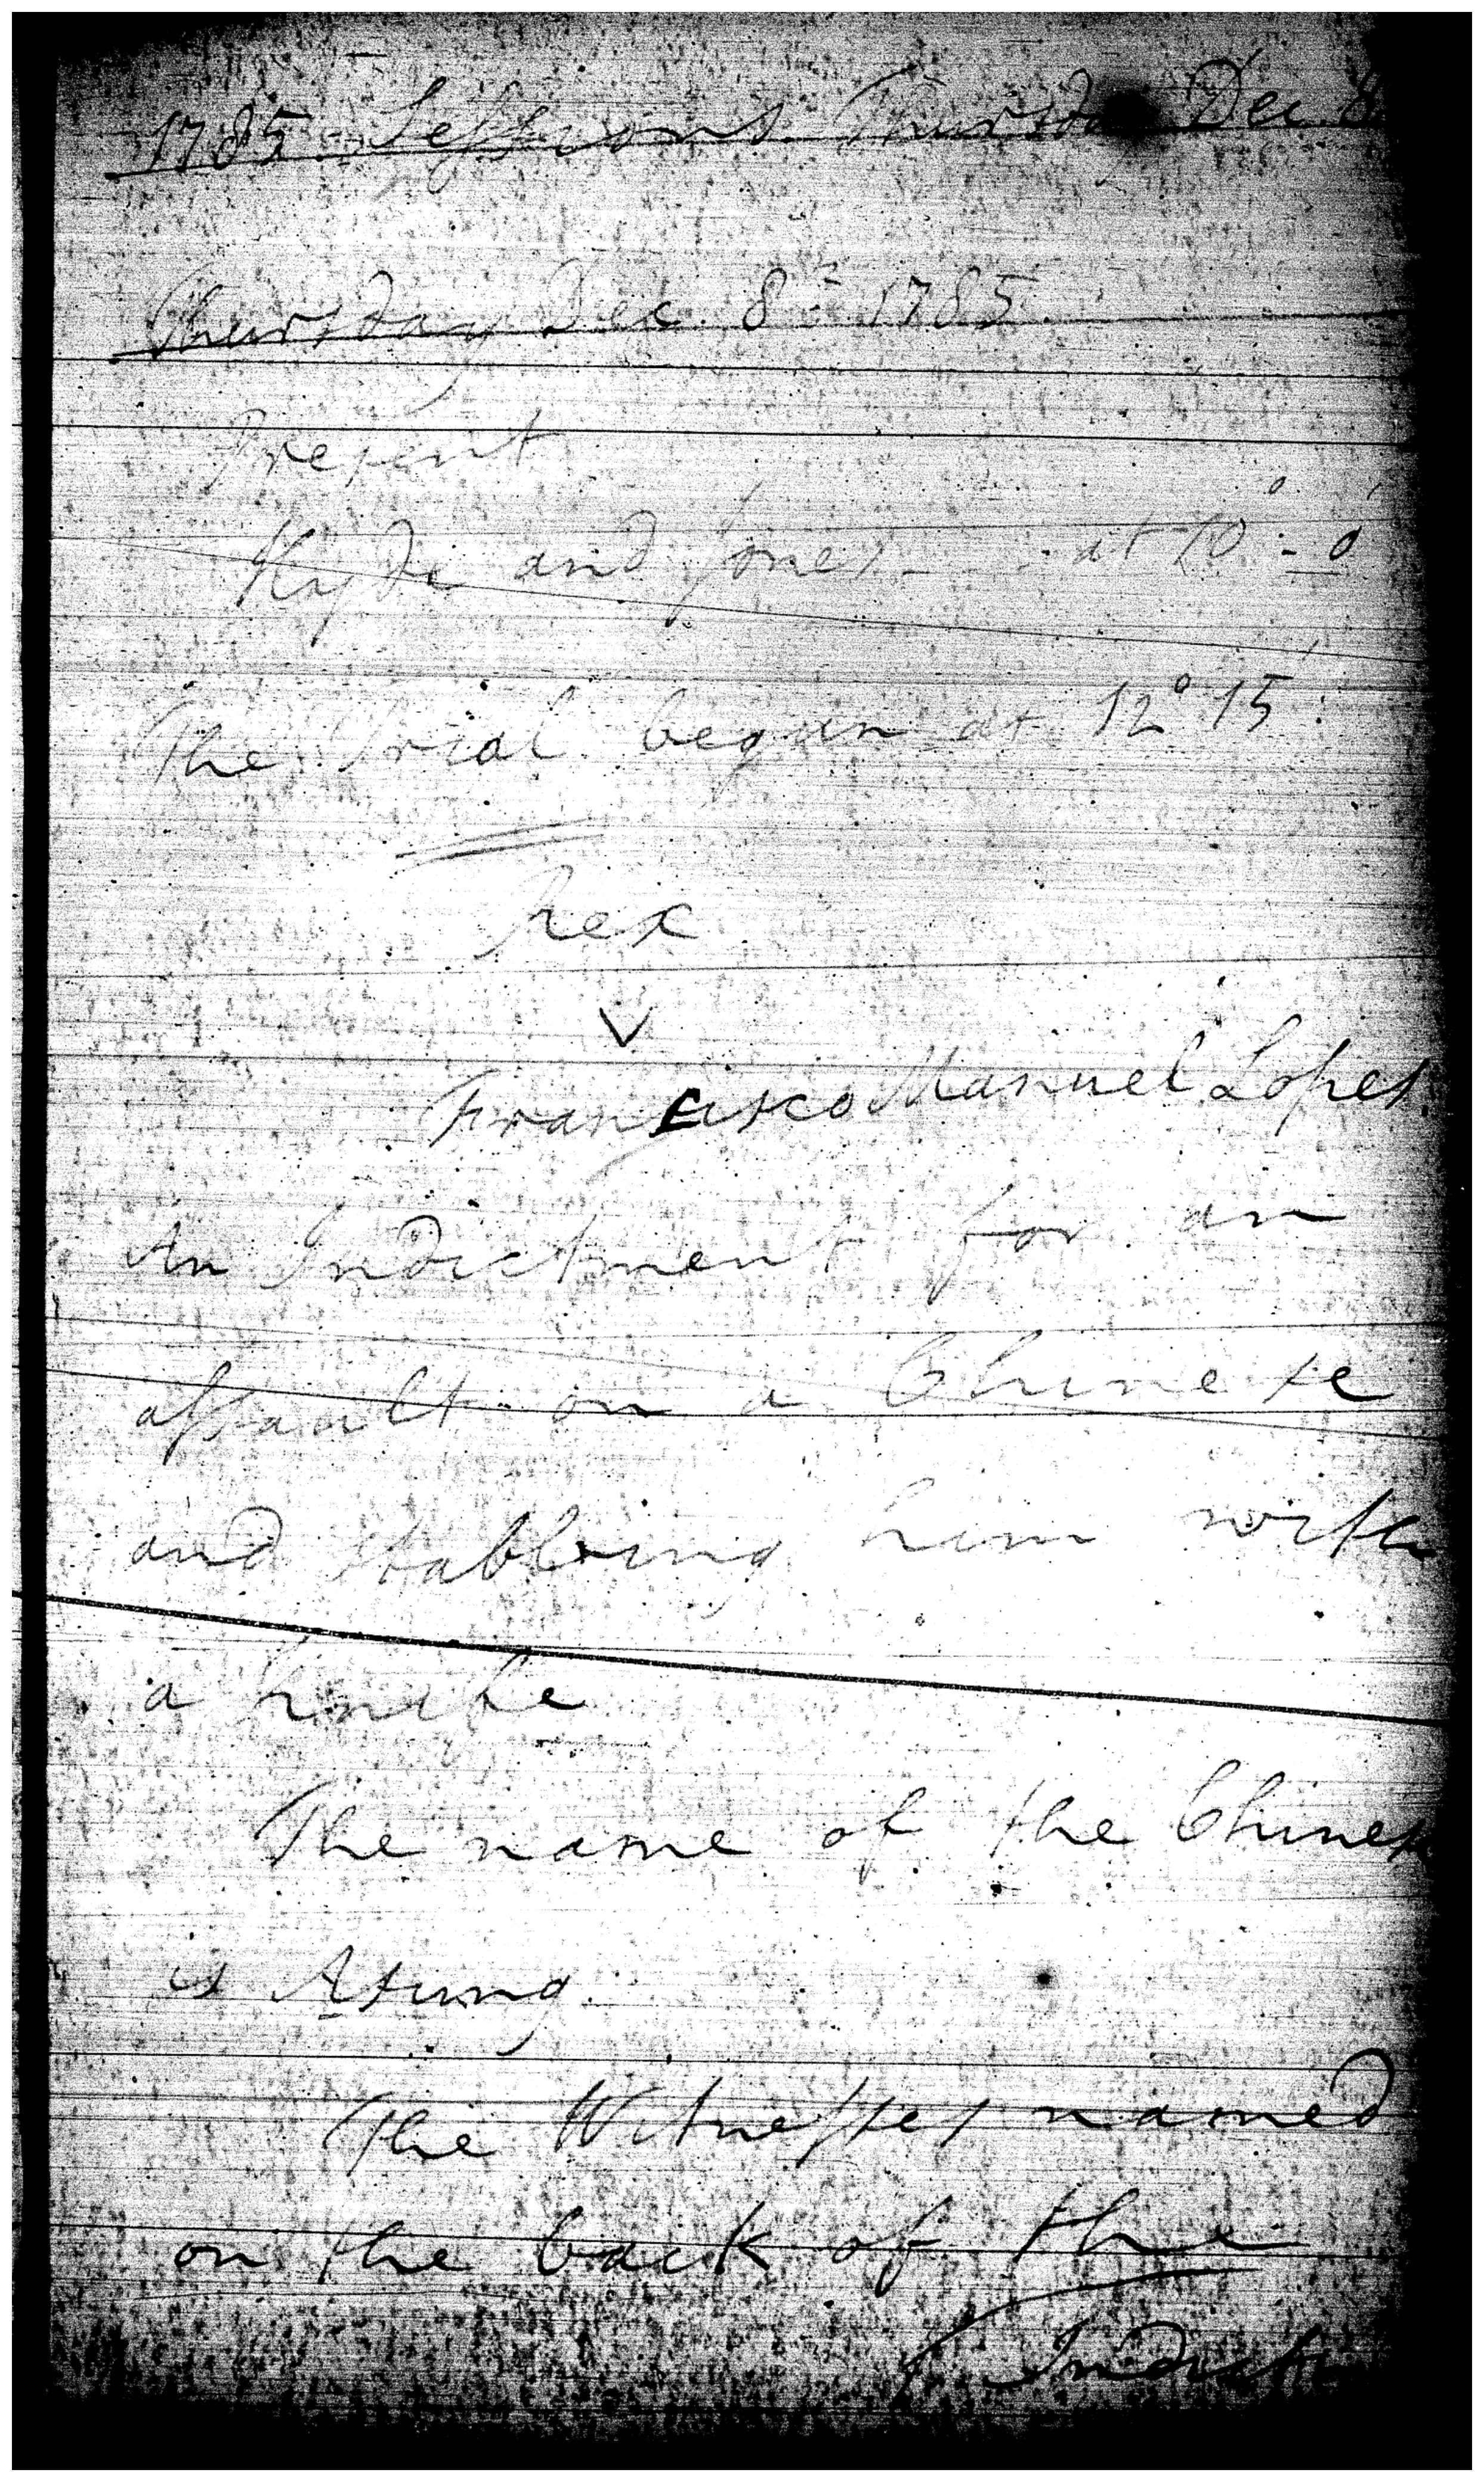 1785 Sessions Thursday Dec. 8
Thursday Dec. 8th 1785.
Present
Hyde and Jones - - - at 10° - 0'
The Trial begun at 12° 15':
Rex
V
Francisco Manuel Lopes
An Indictment for an
assault on a Chinese
and stabbing him with
a knife
The name of the Chinese
is
The Witnesses named
on the back of the
Indict